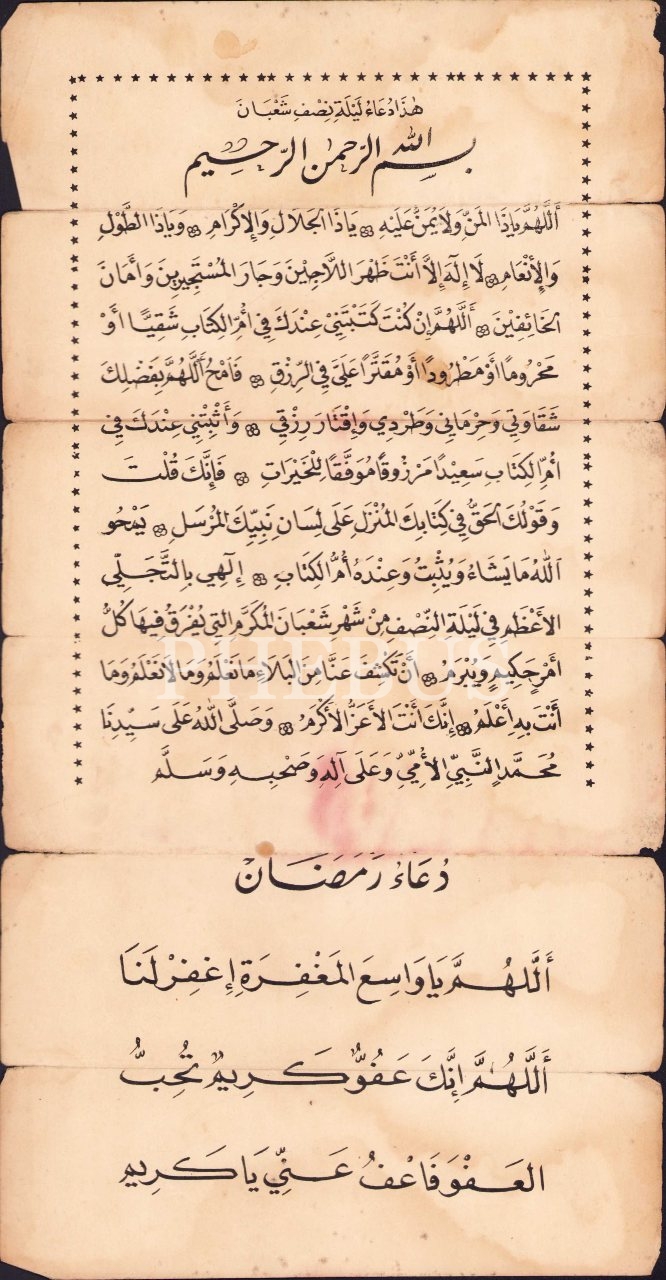 هٰذَا دُعَاءُ لَيْلَةِ نِصْفِ شَعْبَانَ
بِسْمِ اللهِ الرَّحْمٰنِ الرَّحِيمِ
أَللّٰهُمَّ يَاذَا المَنِّ وَلَا يُمَنُّ عَلَيْهِ ۞ يَاذَا الْجَلَالِ وَالإِكْرَامِ ۞ وَيَاذَا الطَّوْلِ
وَالإِنْعَامِ ۞ لَا إِلٰهَ إِلَّا أَنْتَ ظَهَرَ اللَّاجِيْنَ وَجَارَ المُسْتَجِيرِينَ وَأَمَانَ
الْخَائِفِيْنَ ۞ أَللّٰهُمَّ إِنْ كُنْتَ كَتَبْتَنِيْ عِنْدَكَ فِي أُمِّ الكِتَابِ شَقِيًّا أَوْ
مَحْرُومًا أَوْ مَطْرُودًا أَوْ مُقَتَّرًا عَلَيَّ فِي الرِّزْقِ ۞ فَامْحُ أَللّٰهُمَّ بِفَضْلِكَ
شَقَاوَتِي وَحِرْمَانِي وَطَرْدِي وَإِقْتَارَ رِزْقِي ۞ وَأَثْبِتْنِي عِنْدَكَ فِي
أُمِّ الكِتَابِ سَعِيْدًا مَرْزُوقًا مُوَفَّقًا لِلْخَيْرَاتِ ۞ فَإِنَّكَ قُلْتَ
وَقَوْلُكَ الْحَقُّ فِي كِتَابِكَ المُنْزَلِ عَلَى لِسَانِ نَبِيِّكَ المُرْسَلِ ۞ يَمْحُو
اللهُ مَا يَشَاءُ وَيُثْبِتُ وَعِنْدَهُ أُمُّ الكِتَابِ ۞ إِلٰهِي بِالتَّجَلِّي
الأَعْظَمِ فِي لَيْلَةِ النِّصْفِ مِنْ شَهْرِ شَعْبَانَ المُكَرَّمِ التِي يُفْرَقُ فِيهَا كُلُّ
أَمْرٍ حَكِيمٍ وَيُبْرَمُ ۞ أَنْ تَكْشِفَ عَنَّا مِنَ الْبَلَاءِ مَا نَعْلَمُ وَمَا لَا نَعْلَمُ وَمَا
أَنْتَ بِهِ أَعْلَمُ ۞ إِنَّكَ أَنْتَ الأَعَزُّ الأَكْرَمُ ۞ وَصَلَّى اللهُ عَلَى سَيِّدِنَا
مُحَمَّدٍ النَّبِيِّ الأُمِّيِّ وَعَلَى آلِهِ وَصَحْبِهِ وَسَلَّمَ
PHEBUS
دُعَاءُ رَمَضَانَ
أَللّٰهُمَّ يَا وَاسِعَ المَغْفِرَةِ إِغْفِرْ لَنَا
أَللّٰهُمَّ إِنَّكَ عَفُوٌّ كَرِيمٌ تُحِبُّ
العَفْوَ فَاعْفُ عَنِّي يَا كَرِيم